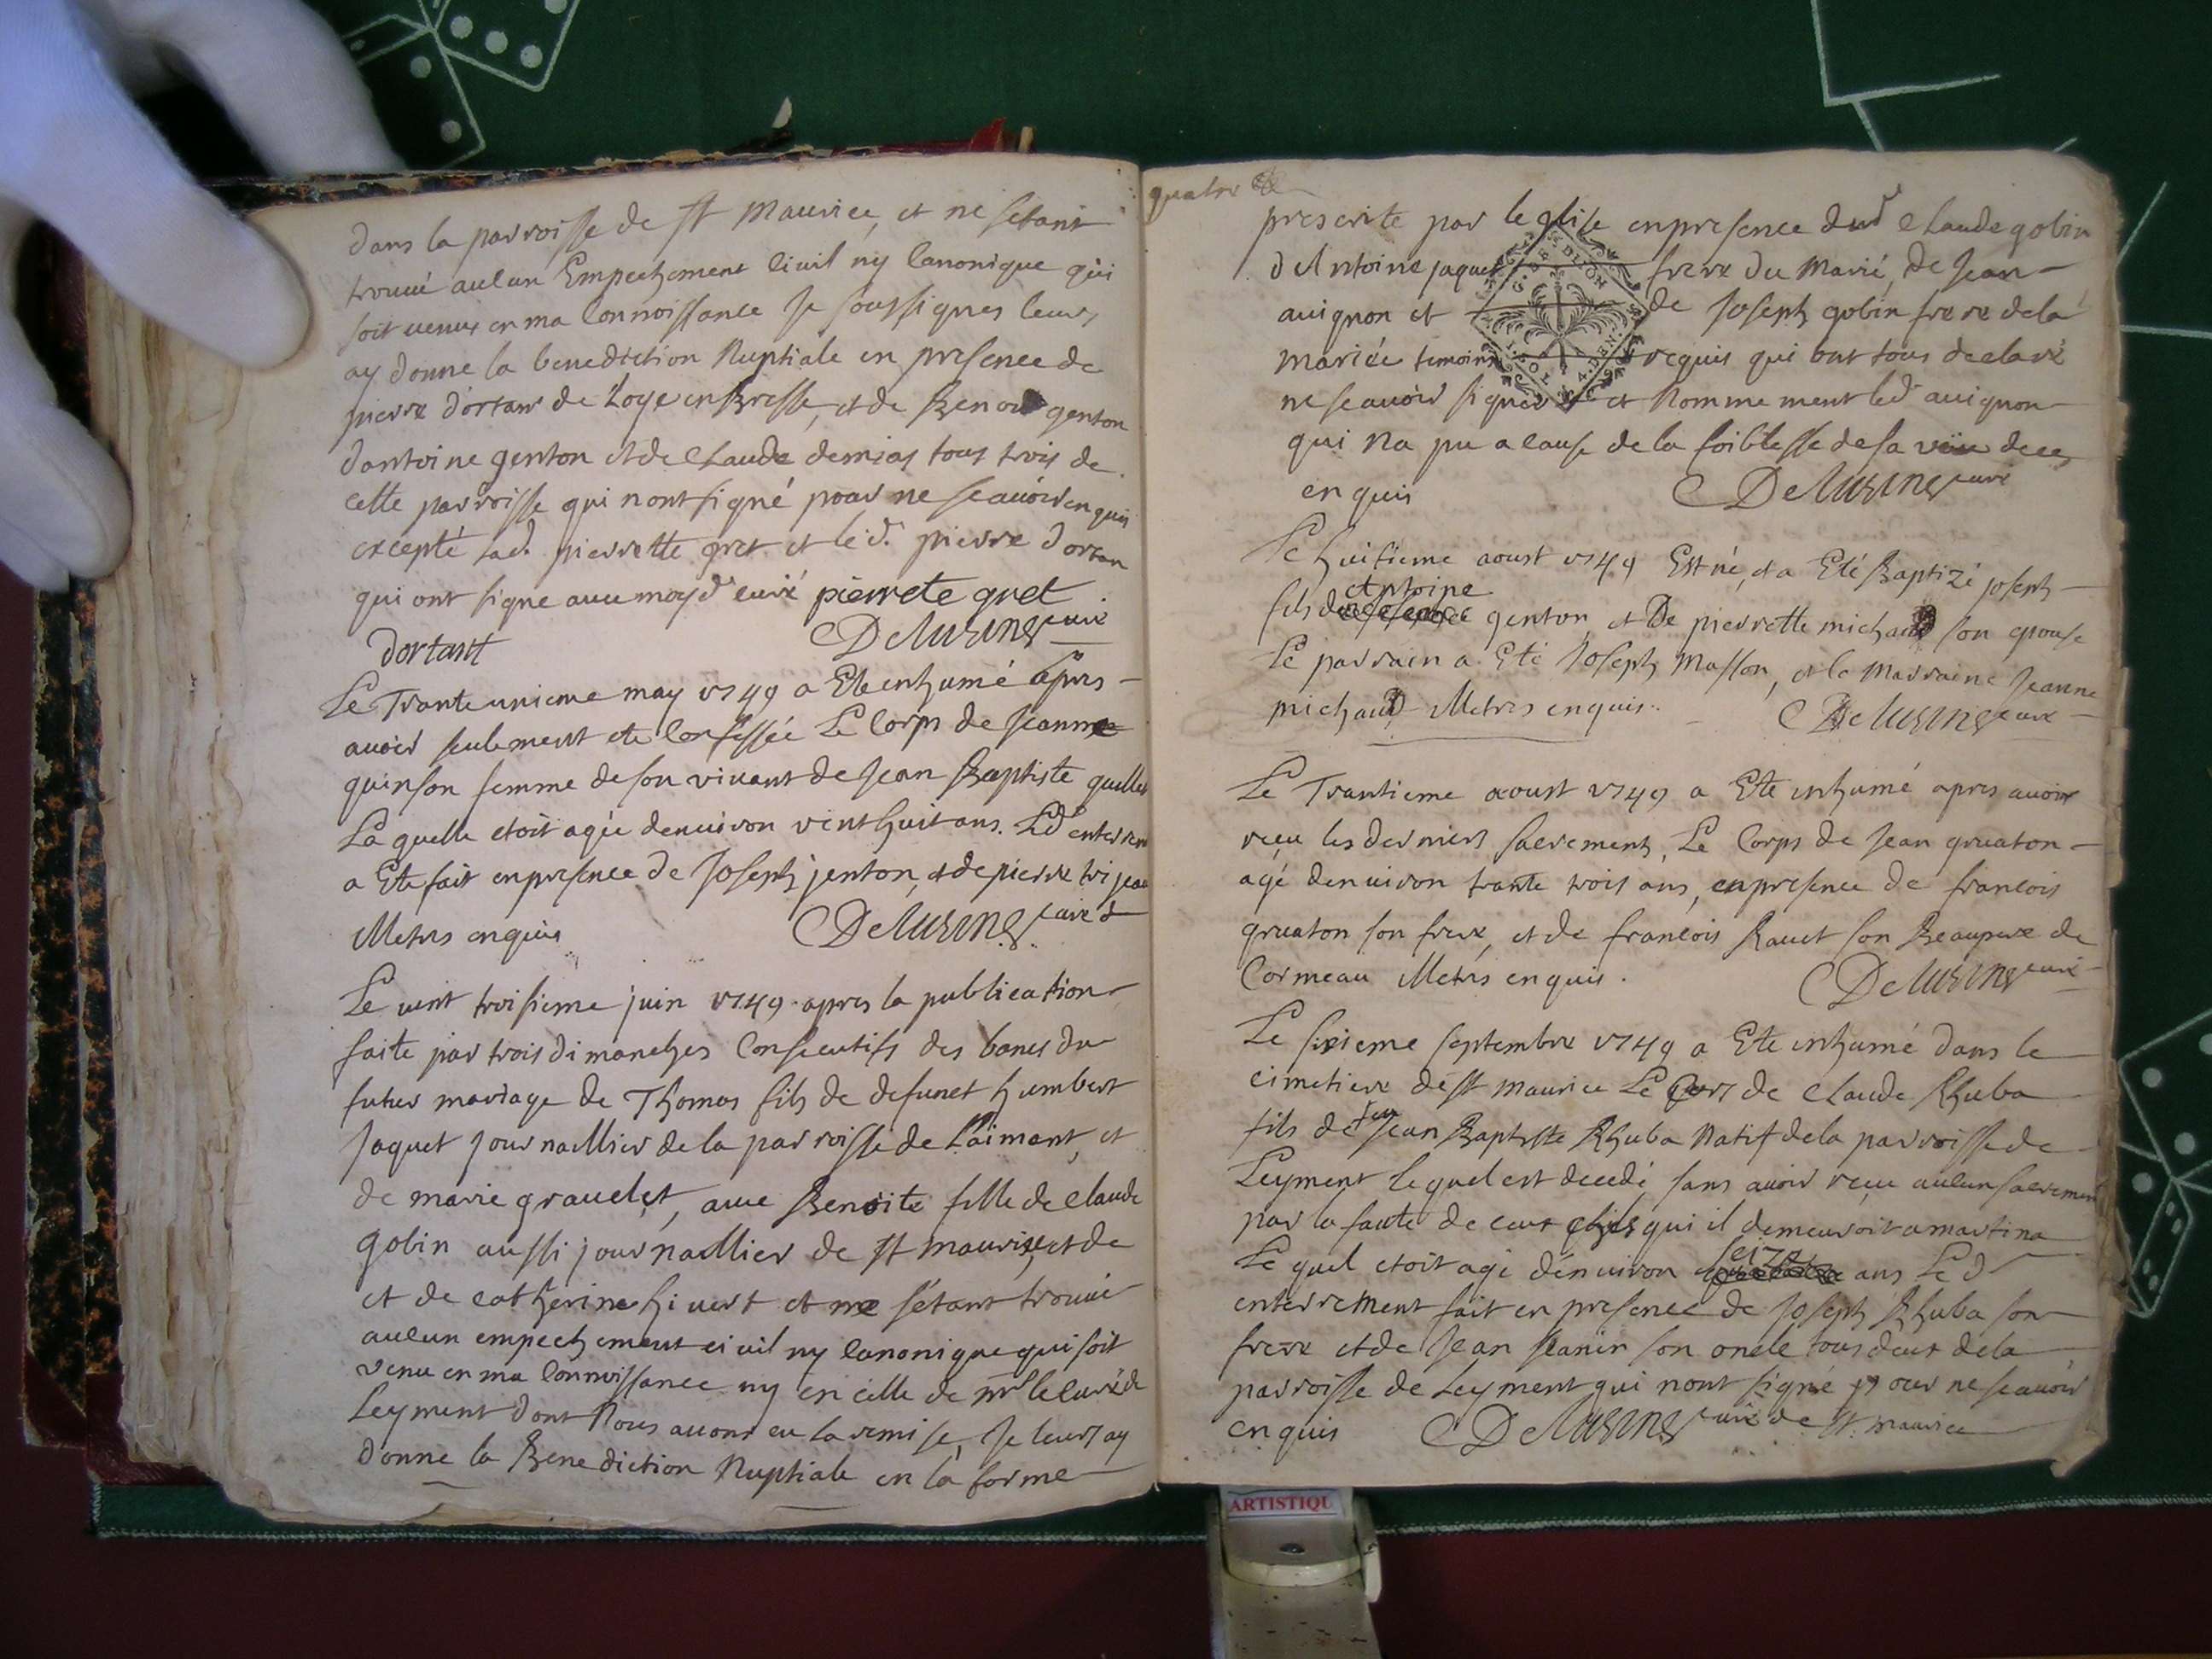 dans la parroisse de st Maurice, et ne setant
trouvé aulcun Empechement Civil ny Canonique qui
soit venus en ma Connoissance Je soussignes leurs
ay donne la benediction Nuptiale en presence de
pierre d'ortan de Loye en Bresse, et de Benoit genton
dantoine genton et de Claude demias tous trois de
cette parroisse qui nont signé pour ne scavoir enquis
excepté lad. pierrette gret et led. pierre dortan
qui ont signe avec moyd curé pierrete gret
dortant Delusing curé
Le Trante unieme may 1749 a Ete inhumé apres
avoir seulement ete Confessée Le Corps de Jeanne
quinson femme de son vivant de Jean Baptiste
La quelle etoit agée denviron vint huit ans. Led enterrem
a Ete fait enpresence de Joseph jenton, et de pierre
Metres enquis Delusing curé
Le vint troisieme juin 1749 apres la publication
faite par trois dimanches Consecutifs des bancs du
futur mariage de Thomas fils de defunct humbert
Jaquet Journallier de la parroisse de Laimant, et
de marie gravelet, avec Benoite fille de Claude
gobin aussi journallier de st maurise, et de
et de catherine hivert et ne sétant trouvé
aulcun empechement civil ny canonique qui soit
venu en ma Connoissance ny en celle de mr le Curé de
Leyment dont Nous avons eu la remise, Je leurs ay
donne la Benediction Nuptiale en la forme
quatre
prescrite par leglise enpresence dud Claude gobin
d'Antoine jaquet frere du Marié, de Jean
avignon et de Joseph gobin frere dela
mariée temoins requis qui ont tous declaré
ne scavoir signer et Nommement led avignon
qui Na pu a cause de la foiblesse desa veüe de ce
enquis Delusing curé
Le huitieme aoust 1749 Est né, et a Eté Baptizé joseph
fils de Antoine genton et De pierrette michaud son epouse
Le parrain a Eté Joseph Masson, et la Marraine Jeanne
michaud Metres enquis. Delusing curé
Le Trantieme aoust 1749 a Ete inhumé apres avoir
reçu les derniers sacrements, Le Corps de Jean gruaton
agé denviron trante trois ans, enpresence de francois
gruaton son frere, et de francois Ravet son Beaupere de
Cormeau Metres enquis. Delusing curé
Le sixieme septembre 1749 a Ete inhumé dans le
cimetiere de st maurice Le Corps de Claude Rhuba
fils de feu Jean Baptiste Rhuba Natif dela parroisse de
Leyment lequel est decedé sans avoir reçu aulcun sacrement
par la faute de ceux ches qui il demeuroit a martina
Le quel etoit agé denviron seize ans Led
enterrement fait en presence de Joseph Rhuba son
frere et de Jean Jeanin son oncle tous deux dela
parroisse de Leyment qui nont signé pour ne scavoir
enquis Delusing curé de st. maurice
ARTISTIQU